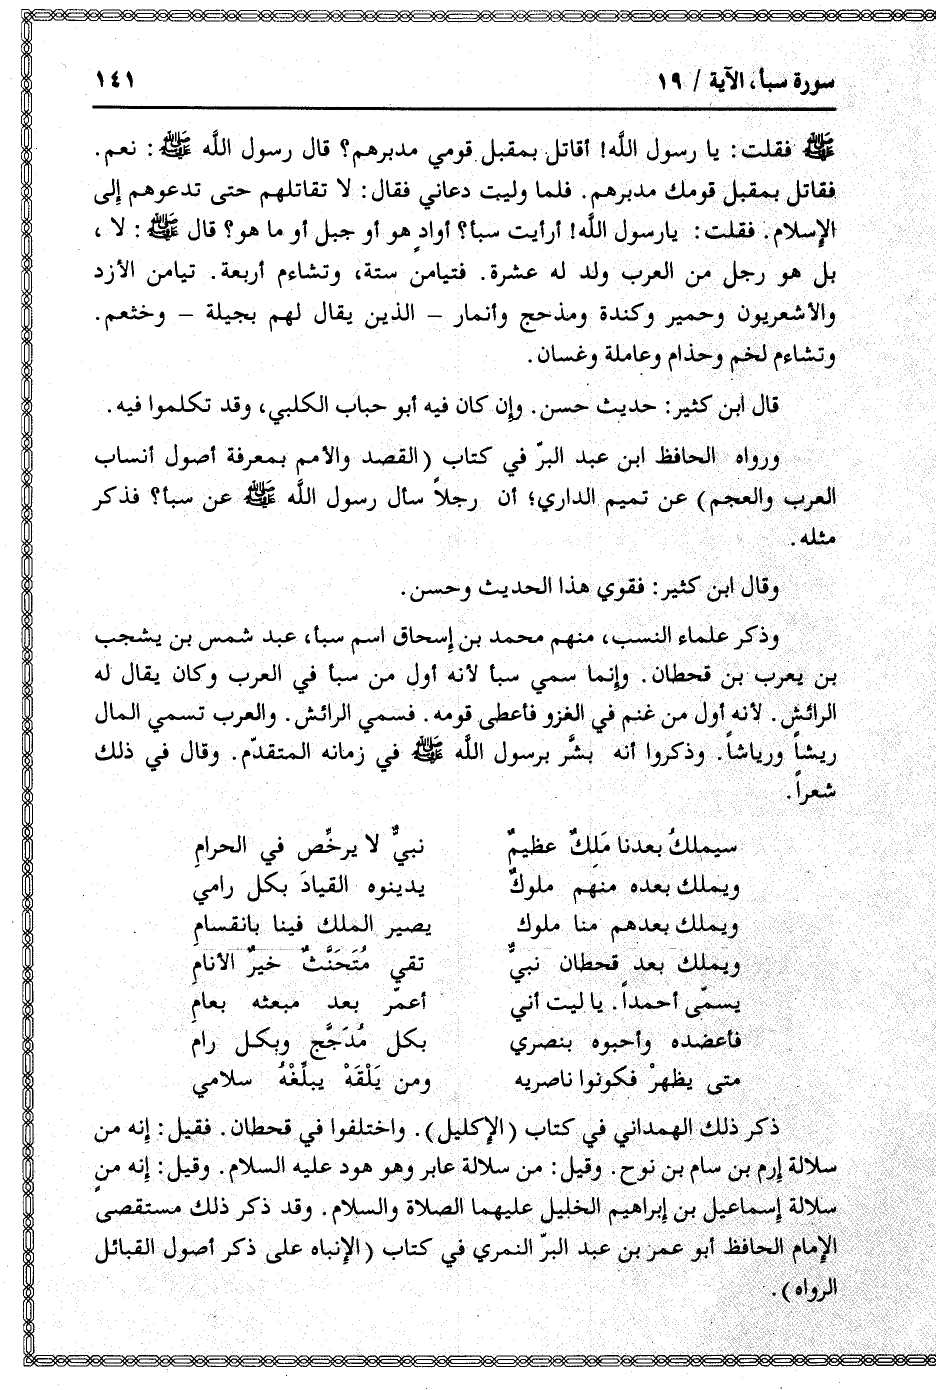 سورة سبأ، الآية / ١٩
١٤١
ﷺ فقلت: يا رسول اللَّه! أقاتل بمقبل قومي مدبرهم؟ قال رسول اللَّه ﷺ: نعم.
فقاتل بمقبل قومك مدبرهم. فلما وليت دعاني فقال: لا تقاتلهم حتى تدعوهم إلى
الإسلام. فقلت: يارسول اللَّه! أرأيت سبأ؟ أوادٍ هو أو جبل أو ما هو؟ قال ﷺ: لا ،
بل هو رجل من العرب ولد له عشرة. فتيامن ستة، وتشاءم أربعة. تيامن الأزد
والأشعريون وحمير وكندة ومذحج وأنمار – الذين يقال لهم بجيلة – وخثعم.
وتشاءم لخم وحذام وعاملة وغسان.
قال ابن كثير: حديث حسن. وإن كان فيه أبو حباب الكلبي، وقد تكلموا فيه.
ورواه الحافظ ابن عبد البرّ في كتاب (القصد والأمم بمعرفة أصول أنساب
العرب والعجم) عن تميم الداري؛ أن رجلاً سأل رسول اللَّه ﷺ عن سبأ؟ فذكر
مثله.
وقال ابن كثير: فقوي هذا الحديث وحسن.
وذكر علماء النسب، منهم محمد بن إسحاق اسم سبأ، عبد شمس بن يشجب
بن يعرب بن قحطان. وإنما سمي سبأ لأنه أول من سبأ في العرب وكان يقال له
الرائش. لأنه أول من غنم في الغزو فأعطى قومه. فسمي الرائش. والعرب تسمي المال
ريشاً ورياشاً. وذكروا أنه بشَّر برسول اللَّه ﷺ في زمانه المتقدّم. وقال في ذلك
شعراً.
سيملكُ بعدنا مَلِكٌ عظيمٌ نبيٌّ لا يرخِّص في الحرامِ
ويملك بعده منهم ملوكٌ يدينوه القيادَ بكل رامي
ويملك بعدهم منا ملوك يصير الملك فينا بانقسامِ
ويملك بعد قحطان نبيٌّ تقي مُتَحَنَّثٌ خيرُ الأنامِ
يسمّى أحمداً. يا ليت أني أعمّر بعد مبعثه بعامِ
فأعضده وأحبوه بنصري بكل مُدَجَّج وبكل رام
متى يظهرْ فكونوا ناصريه ومن يَلْقَهْ يبلِّغْهُ سلامي
ذكر ذلك الهمداني في كتاب (الإكليل). واختلفوا في قحطان. فقيل: إنه من
سلالة إرم بن سام بن نوح. وقيل: من سلالة عابر وهو هود عليه السلام. وقيل: إنه من
سلالة إسماعيل بن إبراهيم الخليل عليهما الصلاة والسلام. وقد ذكر ذلك مستقصى
الإمام الحافظ أبو عمر بن عبد البرّ النمري في كتاب (الإنباه على ذكر أصول القبائل
الرواه).